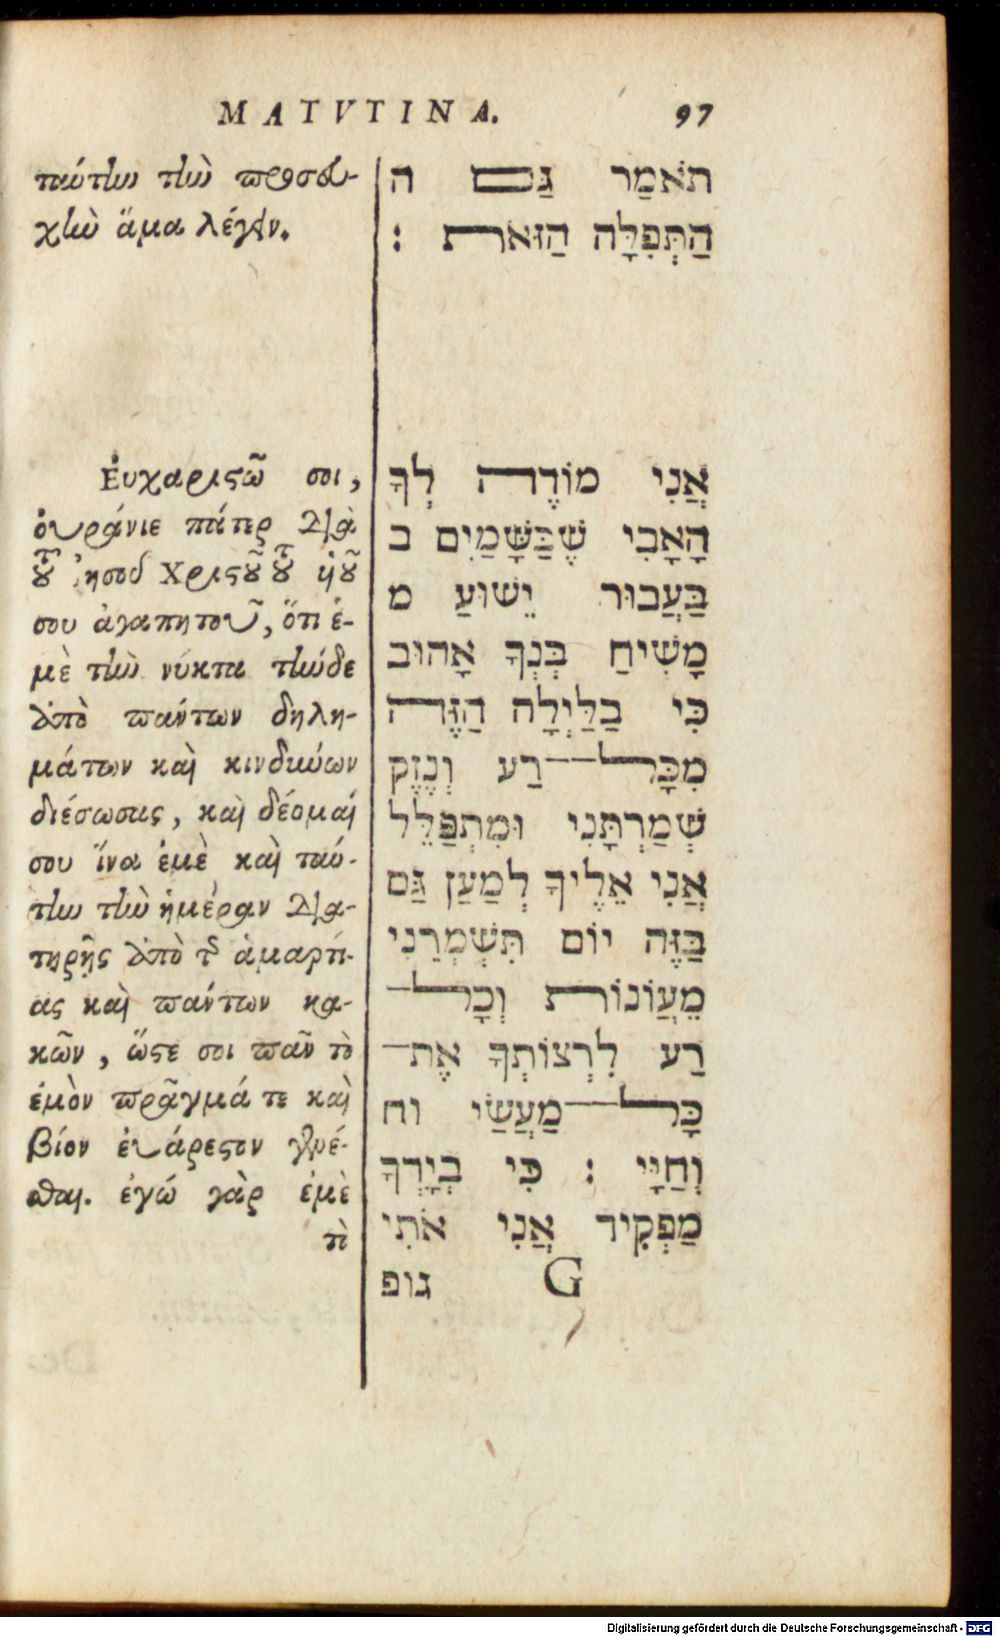 MATVTINA. 97
ταύτην τὴν προσευ-
χὴν ἅμα λέγειν.
Εὐχαριστῶ σοι,
οὐράνιε πάτερ διὰ
τοῦ Ἰησοῦ Χριστοῦ τοῦ ἡοῦ
σου ἀγαπητοῦ, ὅτι ἐ-
μὲ τὴν νύκτα τήνδε
ἀπὸ πάντων δηλη-
μάτων καὶ κινδύνων
διέσωσας, καὶ δέομαί
σου ἵνα ἐμὲ καὶ ταύ-
την τὴν ἡμέραν δια-
τηρῇς ἀπὸ τῆς ἁμαρτί-
ας καὶ πάντων κα-
κῶν, ὥστε σοι πᾶν τὸ
ἐμὸν πρᾶγμά τε καὶ
βίον εὐάρεστον γενέ-
σθαι. ἐγώ γὰρ ἐμὲ
τὸ
תֹאמַר גַּם ה
הַתְּפִלָּה הַזּוֹאת :
אֲנִי מוֹדֶה לְךָ
הָאָבִי שֶׁבַּשָּׁמַיִם ב
בַּעֲבוּר יֵשׁוּעַ מ
מָשִׁיחַ בְּנְךָ אָהוּב
כִּי בַלַּיְלָה הַזֶּה
מִכָּל־רַע וְנֶזֶק
שְׁמַרְתָּנִי וּמִתְפַּלֵּל
אֲנִי אֵלֶיךָ לְמַעַן גַּם
בַּזֶּה יוֹם תִּשְׁמְרֵנִי
מֵעֲוֹנוֹת וְכָל־
רַע לִרְצוֹתְךָ אֶת־
כָּל־מַעֲשַׂי וח
וְחַיָּי : כִּי בְיָדְךָ
מַפְקִיד אֲנִי אֹתִי
G גופ
Digitalisierung gefördert durch die Deutsche Forschungsgemeinschaft - DFG